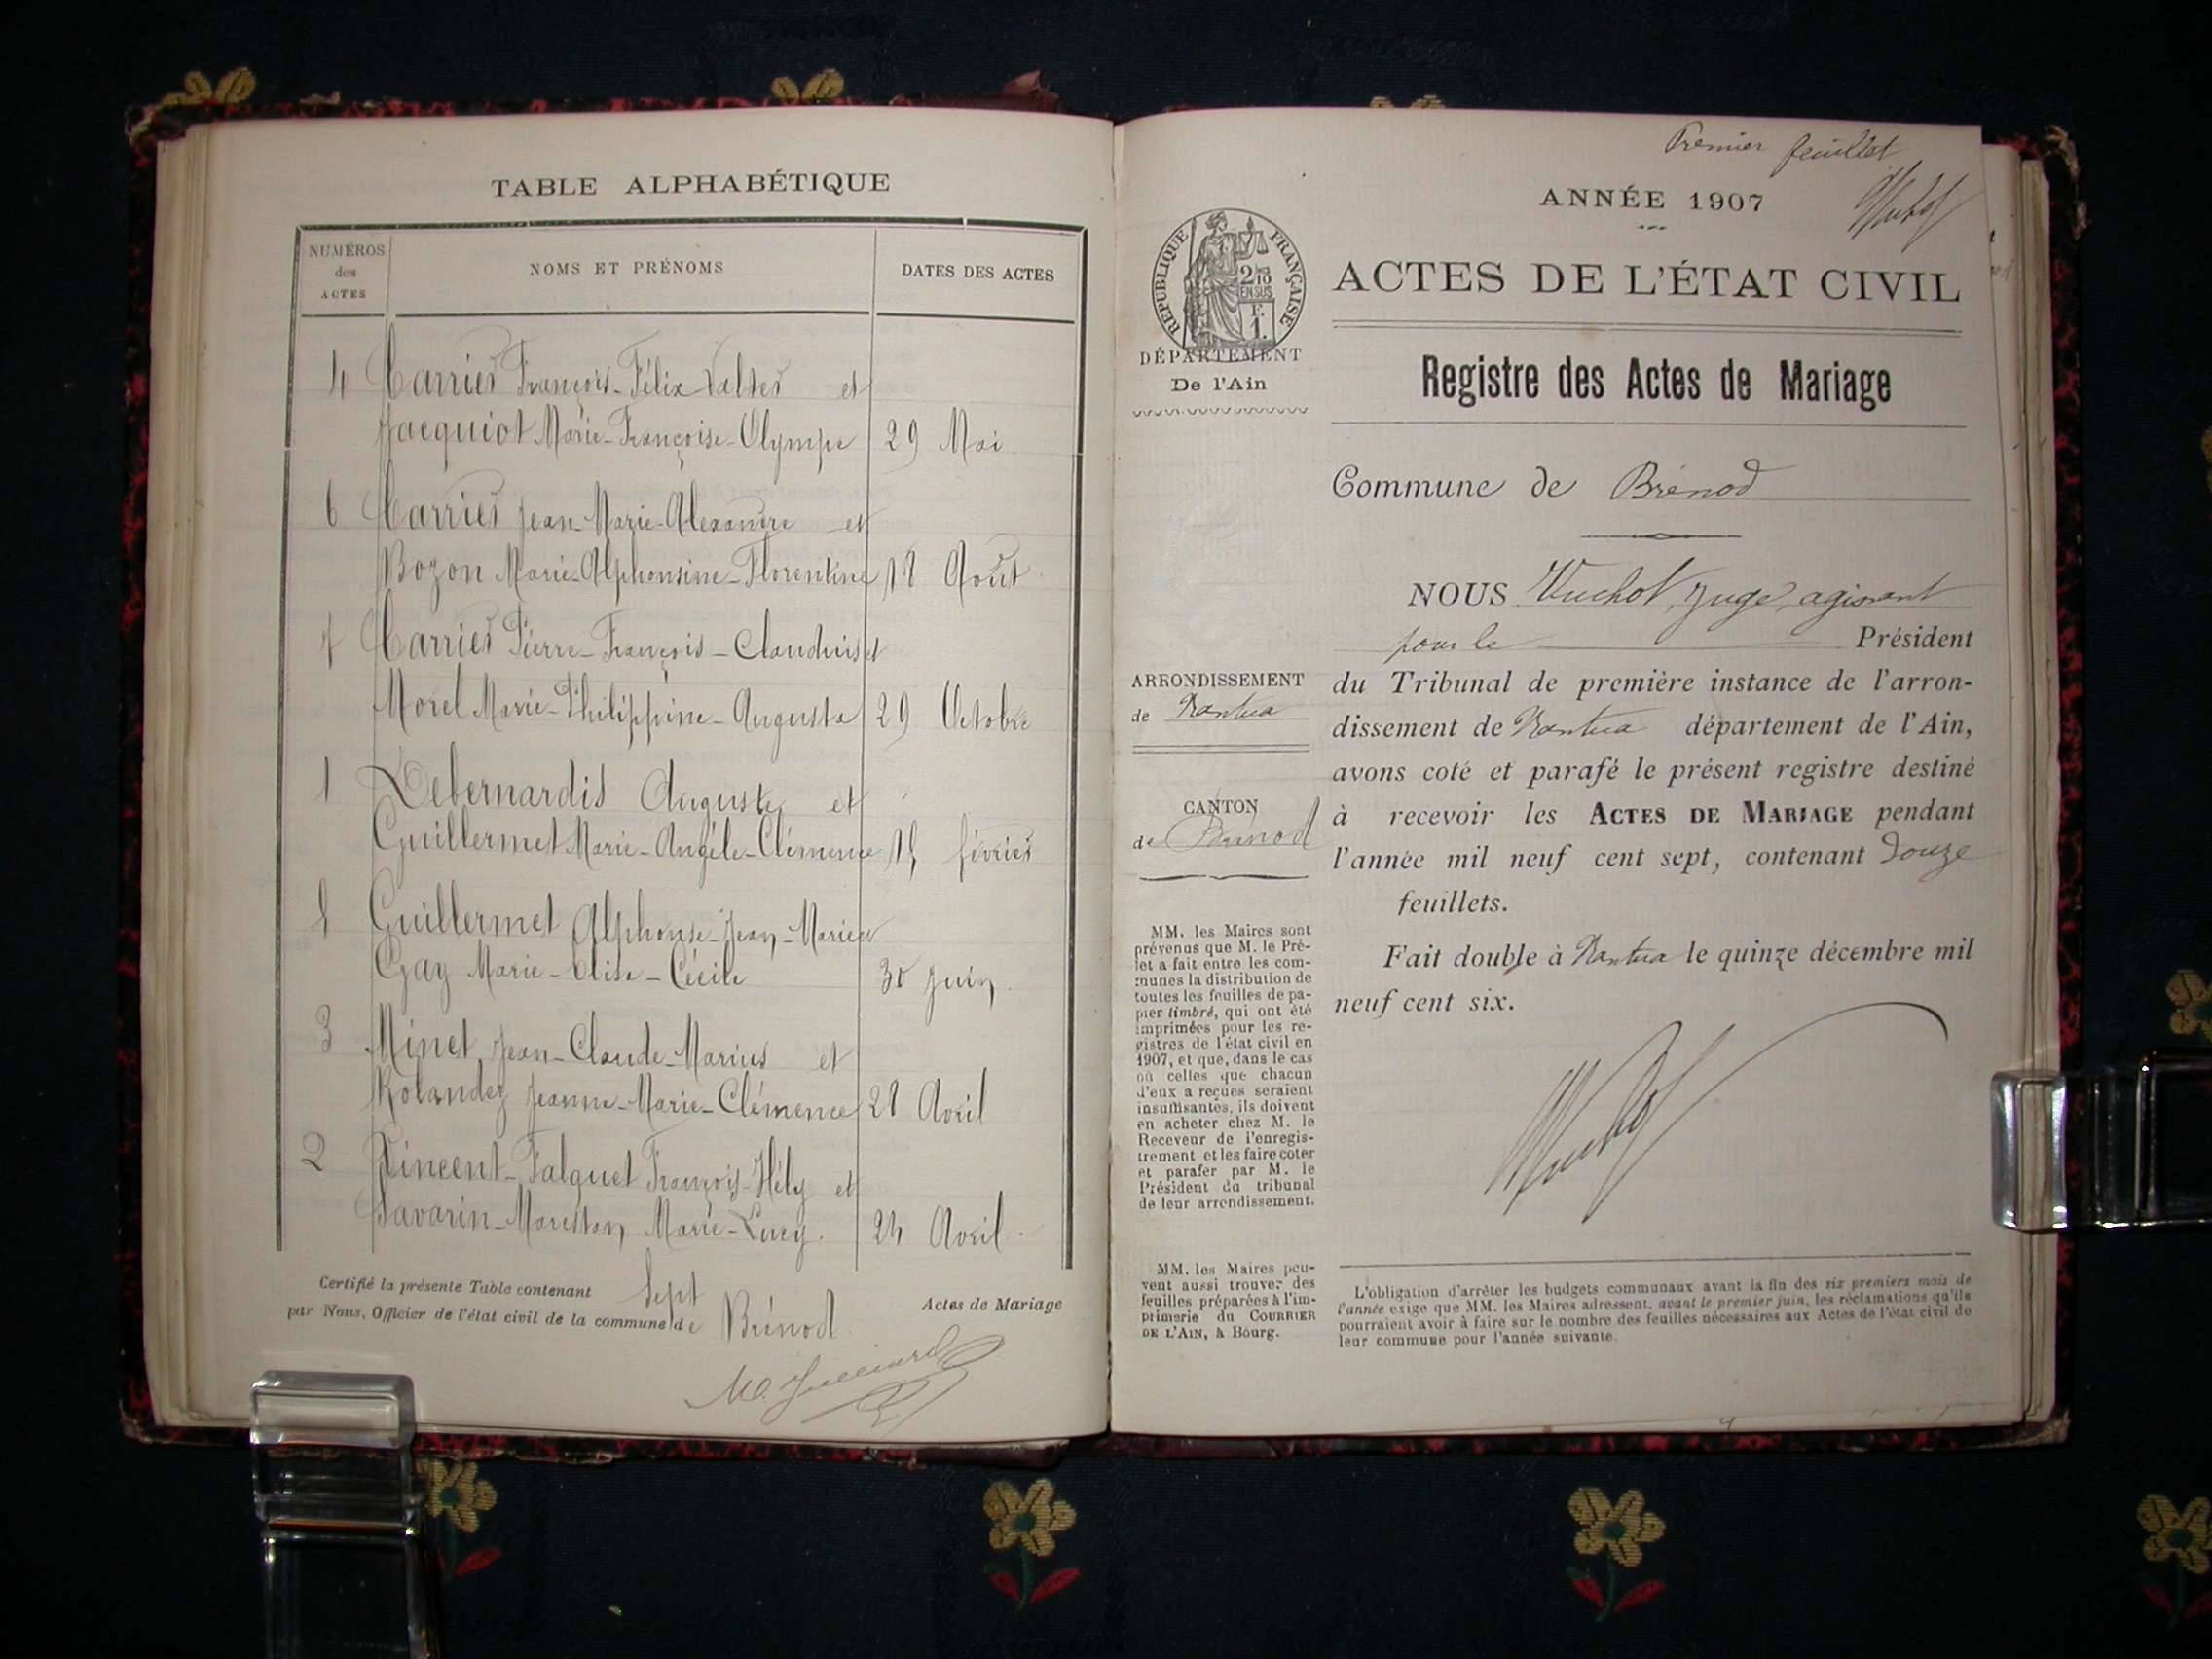 TABLE ALPHABÉTIQUE
NUMÉROS
des
ACTES
NOMS ET PRÉNOMS
DATES DES ACTES
4 Carrier François-Félix-Valter et
Jacquiot Marie-Françoise-Olympe 29 Mai
6 Carrier Jean-Marie-Alexandre et
Bozon Marie-Alphonsine-Florentine 18 Août
7 Carrier Pierre-François-Claudius et
Morel Marie-Philippine-Augusta 29 Octobre
1 Debernardis Auguste et
Guillermet Marie-Angèle-Clémence 15 février
5 Guillermet Alphonse-Jean-Marie et
Gay Marie-Elise-Cécile 30 juin
3 Minet Jean-Claude-Marius et
Rolandez Jeanne-Marie-Clémence 28 Avril
2 Vincent-Falquet François-Hély et
Savarin-Marestan Marie-Lucy. 24 Avril
Certifié la présente Table contenant Sept Actes de Mariage
par Nous, Officier de l'état civil de la commune de Brénod
Premier feuillet
ANNÉE 1907
RÉPUBLIQUE FRANÇAISE
2/10
EN SUS
F.
1.
ACTES DE L'ÉTAT CIVIL
DÉPARTEMENT
De l'Ain
Registre des Actes de Mariage
Commune de Brénod
NOUS Vuchot, Juge, agissant
pour le Président
ARRONDISSEMENT
de Nantua
CANTON
de Brénod
du Tribunal de première instance de l'arron-
dissement de Nantua département de l'Ain,
avons coté et parafé le présent registre destiné
à recevoir les ACTES DE MARIAGE pendant
l'année mil neuf cent sept, contenant douze
feuillets.
Fait double à Nantua le quinze décembre mil
neuf cent six.
MM. les Maires sont
prévenus que M. le Pré-
fet a fait entre les com-
munes la distribution de
toutes les feuilles de pa-
pier timbré, qui ont été
imprimées pour les re-
gistres de l'état civil en
1907, et que, dans le cas
où celles que chacun
d'eux a reçues seraient
insuffisantes, ils doivent
en acheter chez M. le
Receveur de l'enregis-
trement et les faire coter
et parafer par M. le
Président du tribunal
de leur arrondissement.
MM. les Maires peu-
vent aussi trouver des
feuilles préparées à l'im-
primerie du COURRIER
DE L'AIN, à Bourg.
L'obligation d'arrêter les budgets communaux avant la fin des six premiers mois de
l'année exige que MM. les Maires adressent, avant le premier juin, les réclamations qu'ils
pourraient avoir à faire sur le nombre des feuilles nécessaires aux Actes de l'état civil de
leur commune pour l'année suivante.